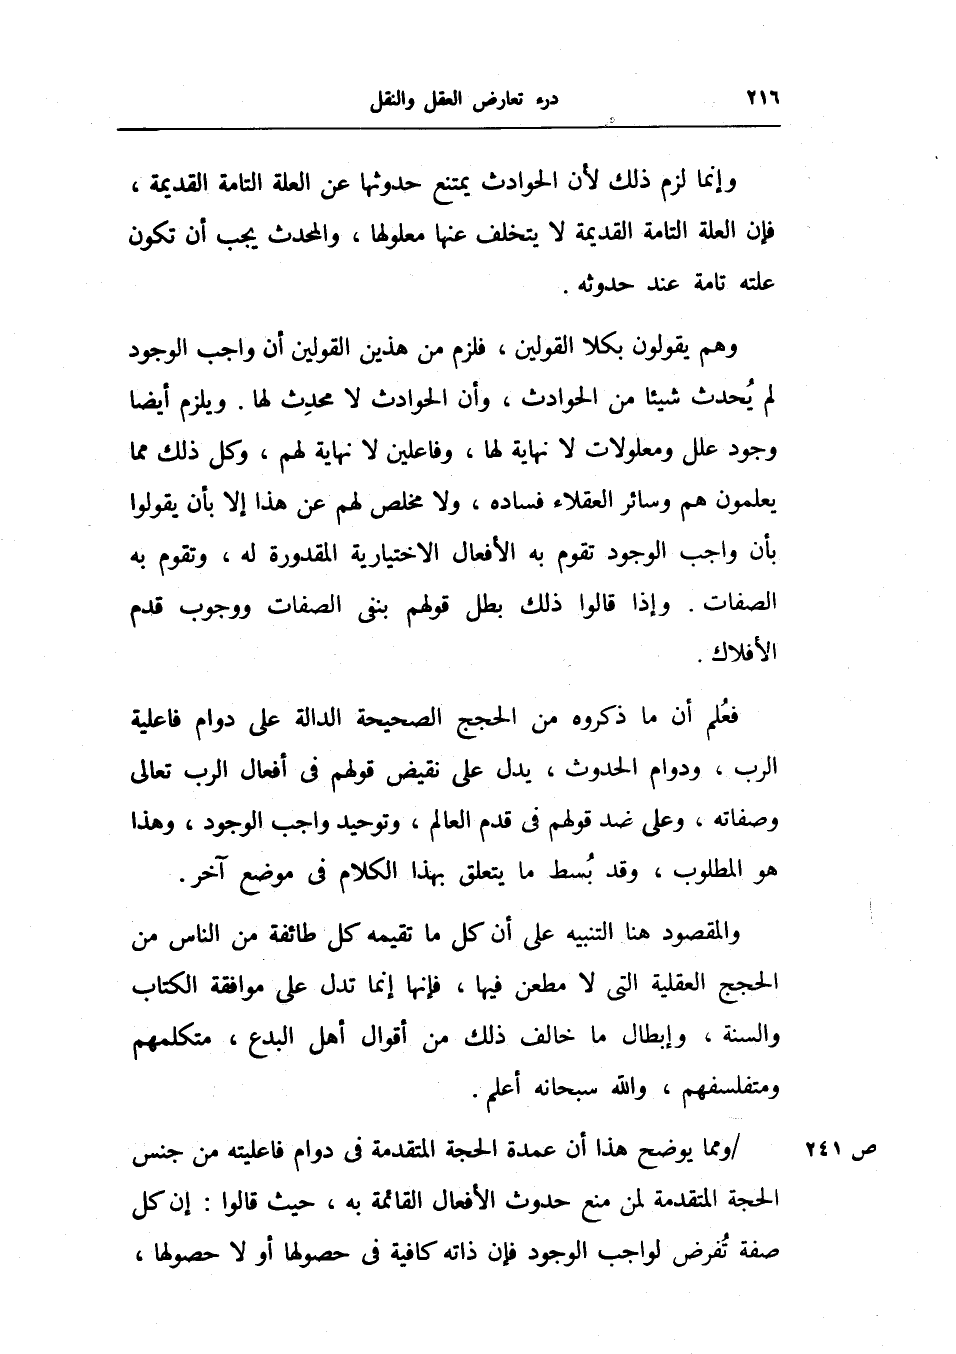 ٢١٦ درء تعارض العقل والنقل
وإنما لزم ذلك لأن الحوادث يمتنع حدوثها عن العلة التامة القديمة ،
فإن العلة التامة القديمة لا يتخلف عنها معلولها ، والمحدث يجب أن تكون
علته تامة عند حدوثه .
وهم يقولون بكلا القولين ، فلزم من هذين القولين أن واجب الوجود
لم يُحدث شيئا من الحوادث ، وأن الحوادث لا محدِث لها . ويلزم أيضا
وجود علل ومعلولات لا نهاية لها ، وفاعلين لا نهاية لهم ، وكل ذلك مما
يعلمون هم وسائر العقلاء فساده ، ولا مخلص لهم عن هذا إلا بأن يقولوا
بأن واجب الوجود تقوم به الأفعال الاختيارية المقدورة له ، وتقوم به
الصفات . وإذا قالوا ذلك بطل قولهم بنفى الصفات ووجوب قدم
الأفلاك .
فعُلم أن ما ذكروه من الحجج الصحيحة الدالة على دوام فاعلية
الرب ، ودوام الحدوث ، يدل على نقيض قولهم فى أفعال الرب تعالى
وصفاته ، وعلى ضد قولهم فى قدم العالم ، وتوحيد واجب الوجود ، وهذا
هو المطلوب ، وقد بُسط ما يتعلق بهذا الكلام فى موضع آخر .
والمقصود هنا التنبيه على أن كل ما تقيمه كل طائفة من الناس من
الحجج العقلية التى لا مطعن فيها ، فإنها إنما تدل على موافقة الكتاب
والسنة ، وإبطال ما خالف ذلك من أقوال أهل البدع ، متكلمهم
ومتفلسفهم ، والله سبحانه أعلم .
ص ٢٤١ /ومما يوضح هذا أن عمدة الحجة المتقدمة فى دوام فاعليته من جنس
الحجة المتقدمة لمن منع حدوث الأفعال القائمة به ، حيث قالوا : إن كل
صفة تُفرض لواجب الوجود فإن ذاته كافية فى حصولها أو لا حصولها ،